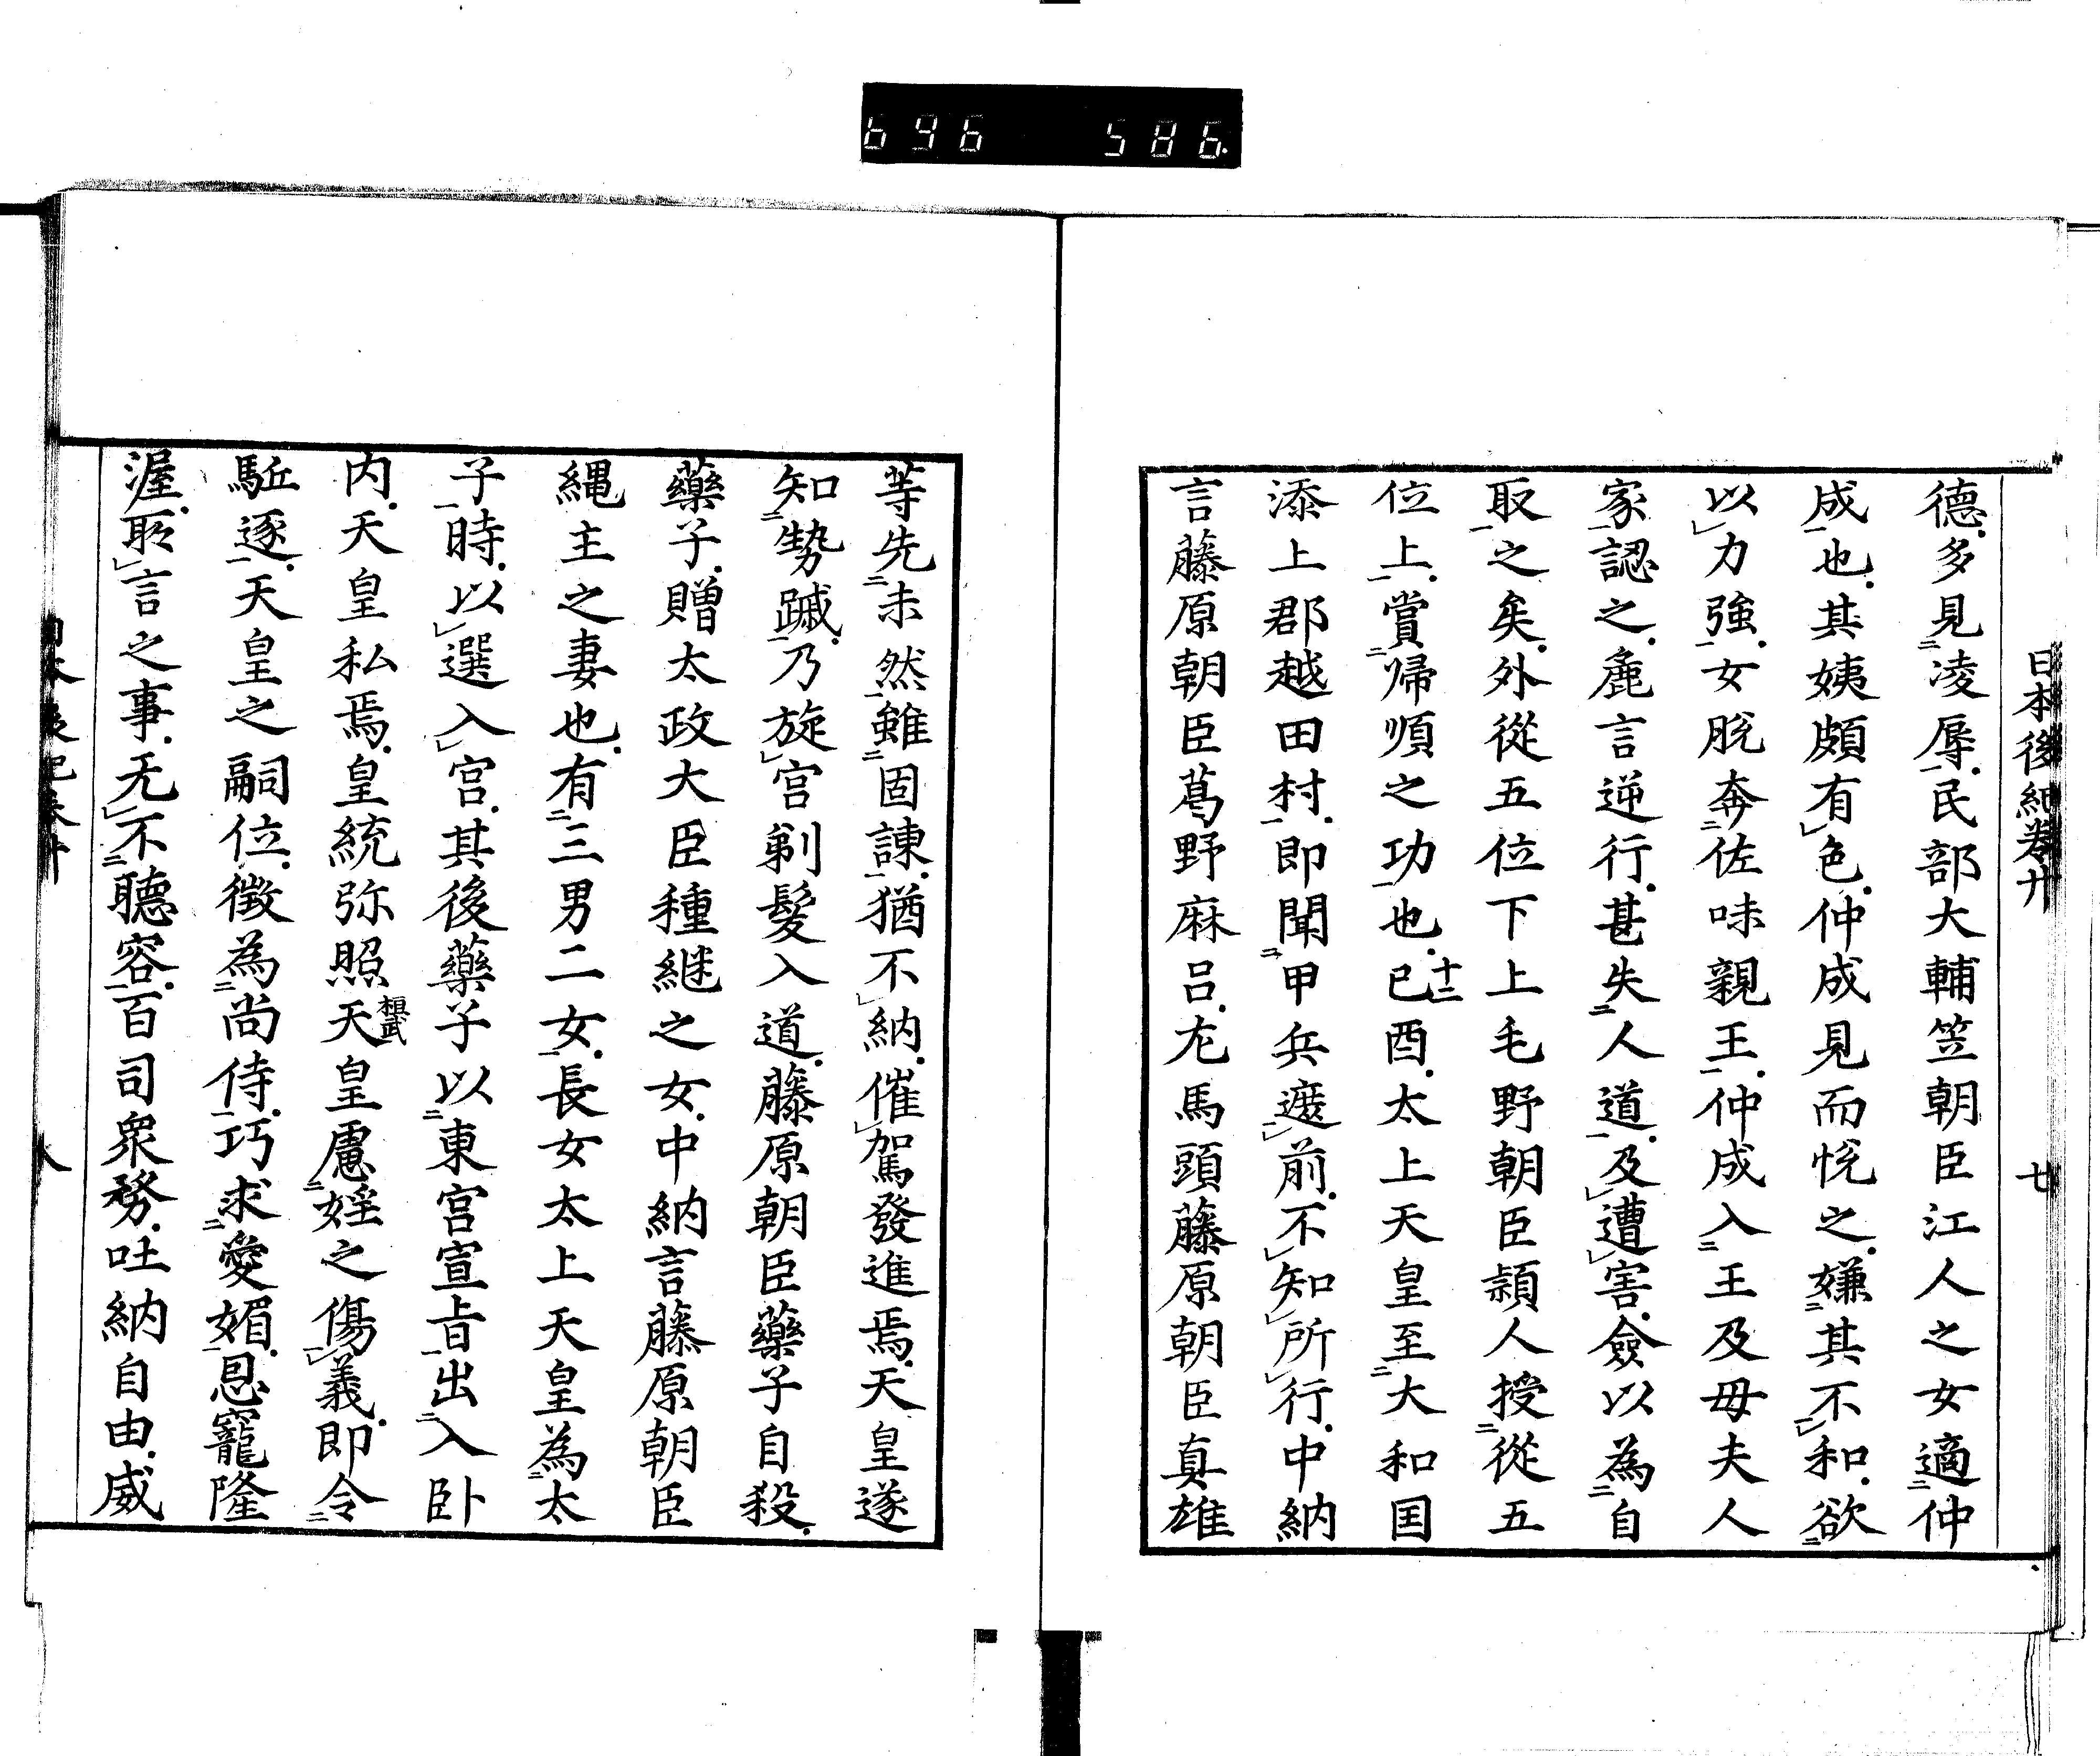 696 586
日本後紀卷廿 七
德多見凌辱民部大輔笠朝臣江人之女適仲
成也其姨頗有色仲成見而悅之嫌其不和欲
以力強女脫奔佐味親王仲成入王及母夫人
家認之麁言逆行甚失人道及遭害僉以為自
取之矣外從五位下上毛野朝臣頴人授從五
位上賞帰順之功也己酉十二太上天皇至大和国
添上郡越田村即聞甲兵遮前不知所行中納
言藤原朝臣葛野麻呂左馬頭藤原朝臣真雄
等先未然雖固諫猶不納催駕發進焉天皇遂
知勢蹙乃旋宮剃髮入道藤原朝臣藥子自殺
藥子贈太政大臣種継之女中納言藤原朝臣
縄主之妻也有三男二女長女太上天皇為太
子時以選入宮其後藥子以東宮宣旨出入卧
内天皇私焉皇統弥照天桓武皇慮婬之傷義即令
駈逐天皇之嗣位徴為尚侍巧求愛媚恩寵隆
渥所言之事无不聴容百司衆務吐納自由威